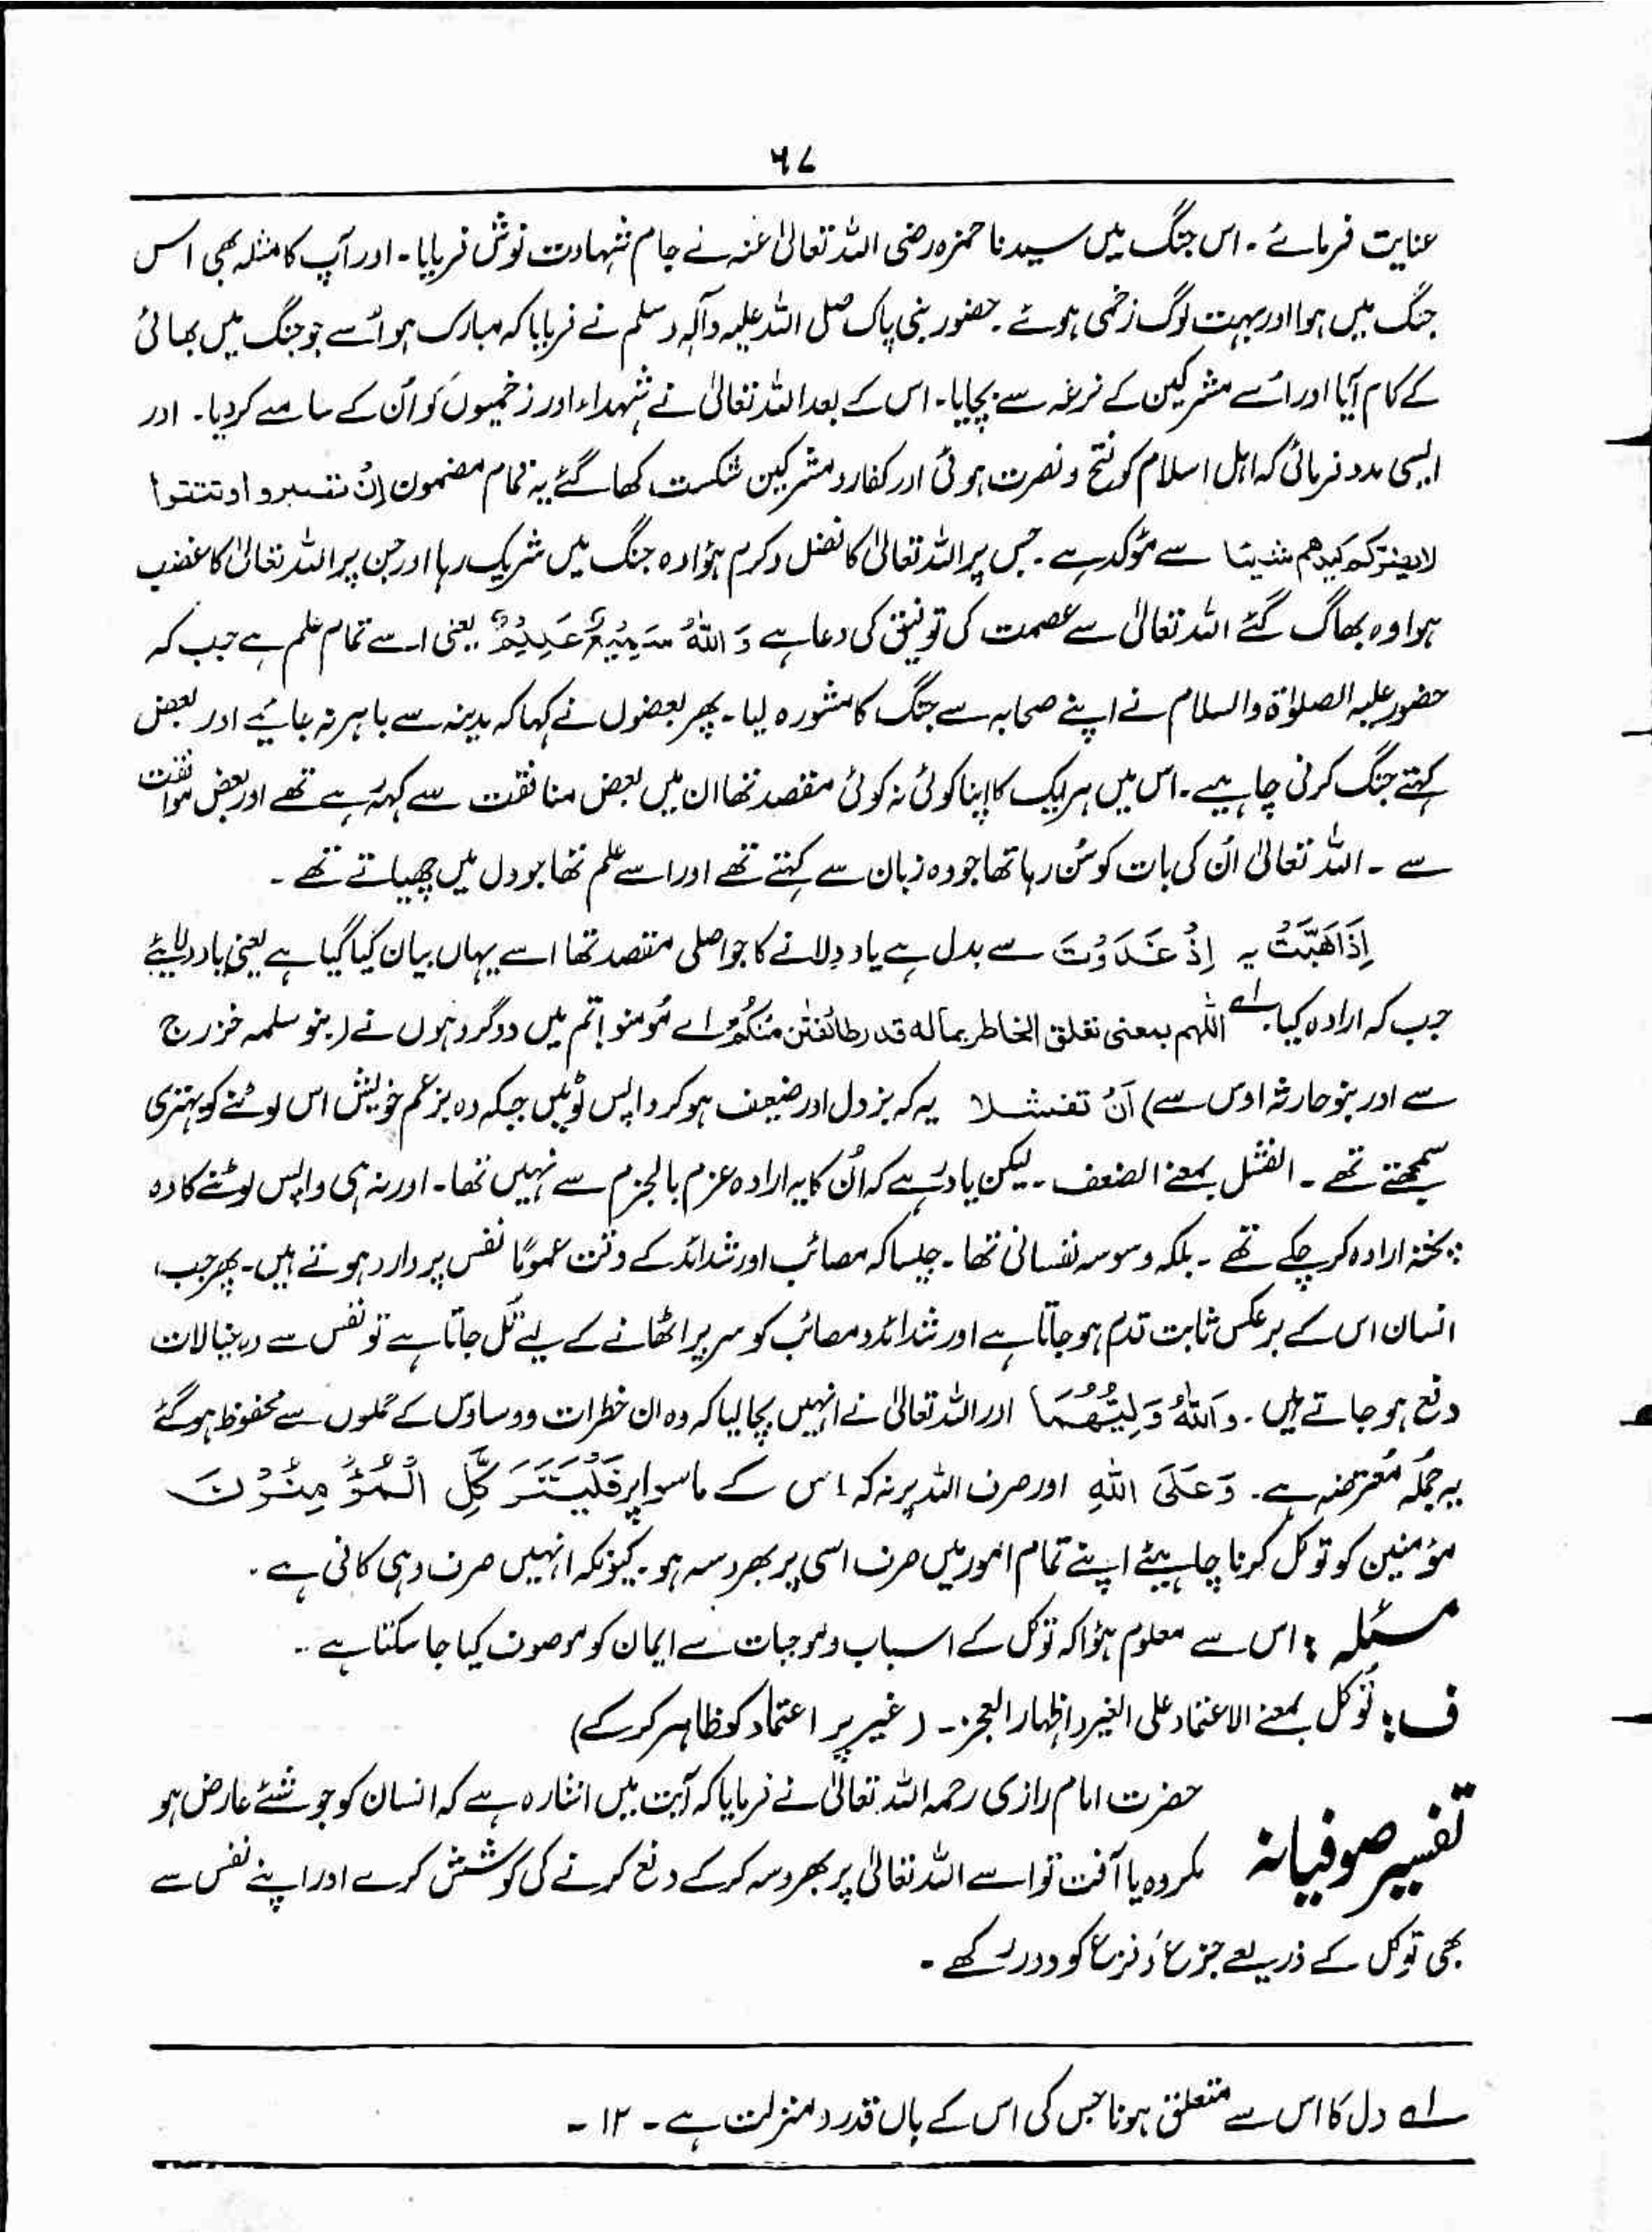 ۶۷
عنایت فرمائے ۔ اس جنگ میں سیدنا حمزہ رضی اللہ تعالیٰ عنہ نے جام شہادت نوش فرمایا ۔ اور آپ کا مثلہ بھی اسی
جنگ میں ہوا اور بہت لوگ زخمی ہوئے ۔ حضور نبی پاک صلی اللہ علیہ وآلہ وسلم نے فرمایا کہ مبارک ہو اُسے جو جنگ میں بھائی
کے کام آیا اور اُسے مشرکین کے نرغہ سے بچایا ۔ اس کے بعد اللہ تعالیٰ نے شہداء اور زخمیوں کو اُن کے سامنے کر دیا ۔ اور
ایسی مدد فرمائی کہ اہل اسلام کو فتح و نصرت ہوئی اور کفار و مشرکین شکست کھا گئے یہ تمام مضمون اِنْ تصبروا و تتقوا
لا یضرکم کیدھم شیئا سے مؤکد ہے ۔ جس پر اللہ تعالیٰ کا فضل و کرم ہؤا وہ جنگ میں شریک رہا اور جن پر اللہ تعالیٰ کا غضب
ہوا وہ بھاگ گئے اللہ تعالیٰ سے عصمت کی توفیق کی دعا ہے وَ اللہُ سَمِیْعٌ عَلِیْمٌ یعنی اسے تمام علم ہے جب کہ
حضور علیہ الصلوٰۃ والسلام نے اپنے صحابہ سے جنگ کا مشورہ لیا ۔ پھر بعضوں نے کہا کہ مدینہ سے باہر نہ جائیے اور بعض
کہتے جنگ کرنی چاہیے ۔ اس میں ہر ایک کا اپنا کوئی نہ کوئی مقصد تھا ان میں بعض منافقت سے کہہ رہے تھے اور بعض موافقت
سے ۔ اللہ تعالیٰ اُن کی بات کو سُن رہا تھا جو وہ زبان سے کہتے تھے اور اسے علم تھا جو دل میں چھپاتے تھے ۔
اِذْ ھَمَّتْ یہ اِذْ غَدَوْتَ سے بدل ہے یاد دلانے کا جو اصلی مقصد تھا اسے یہاں بیان کیا گیا ہے یعنی یاد دلائیے
جب کہ ارادہ کیا ۔ لہ اللہم بمعنی تعلق الخاطر بمالہ قدر طائفتٰن مِنکُمْ اے مُومنو! تم میں دو گروہوں نے (بنو سلمہ خزرج
سے اور بنو حارثہ اوس سے) اَنْ تفشلا یہ کہ بزدل اور ضیعف ہو کر واپس لوٹیں جبکہ وہ بزعم خویش اس لوٹنے کو بہتری
سمجھتے تھے ۔ الفشل بمعنے الضعف ۔ لیکن یاد رہے کہ اُن کا یہ ارادہ عزم بالجزم سے نہیں تھا ۔ اور نہ ہی واپس لوٹنے کا وہ
پختہ ارادہ کر چکے تھے ۔ بلکہ وسوسہ نفسانی تھا ۔ جیسا کہ مصائب اور شدائد کے وقت عموماً نفس پر وارد ہوتے ہیں ۔ پھر جب
انسان اس کے برعکس ثابت قدم ہو جاتا ہے اور شدائد و مصائب کو سر پر اٹھانے کے لیے تُل جاتا ہے تو نفس سے وہ خیالات
دفع ہو جاتے ہیں ۔ وَاللہُ وَلِیُّھُمَا اور اللہ تعالیٰ نے انہیں بچا لیا کہ وہ ان خطرات و وساوس کے حملوں سے محفوظ ہو گئے
یہ جملہ مُعترضہ ہے ۔ وَ عَلَی اللہِ اور صرف اللہ پر نہ کہ اس کے ماسوا پر فَلْیَتَوَ کَّلِ الْمُؤْ مِنُوْنَ
مؤمنین کو توکل کرنا چاہیئے اپنے تمام امور میں صرف اسی پر بھروسہ ہو ۔ کیونکہ انہیں صرف وہی کافی ہے ۔
مسئلہ : اس سے معلوم ہؤا کہ توکل کے اسباب و موجبات سے ایمان کو موصوف کیا جا سکتا ہے ۔
ف : تُوکل بمعنے الاعتماد علی الغیر و اظہار العجز ۔ (غیر پر اعتماد کو ظاہر کر کے)
تفسیر صوفیانہ حضرت امام رازی رحمہ اللہ تعالیٰ نے فرمایا کہ آیت میں اشارہ ہے کہ انسان کو جو شئے عارض ہو
مکروہ یا آفت تو اسے اللہ تعالیٰ پر بھروسہ کر کے دفع کرنے کی کوشش کرے اور اپنے نفس سے
بھی توکل کے ذریعے جزع و فزع کو دور رکھے ۔
لہ دل کا اس سے متعلق ہونا جس کی اس کے ہاں قدر و منزلت ہے ۔ ۱۲ ۔